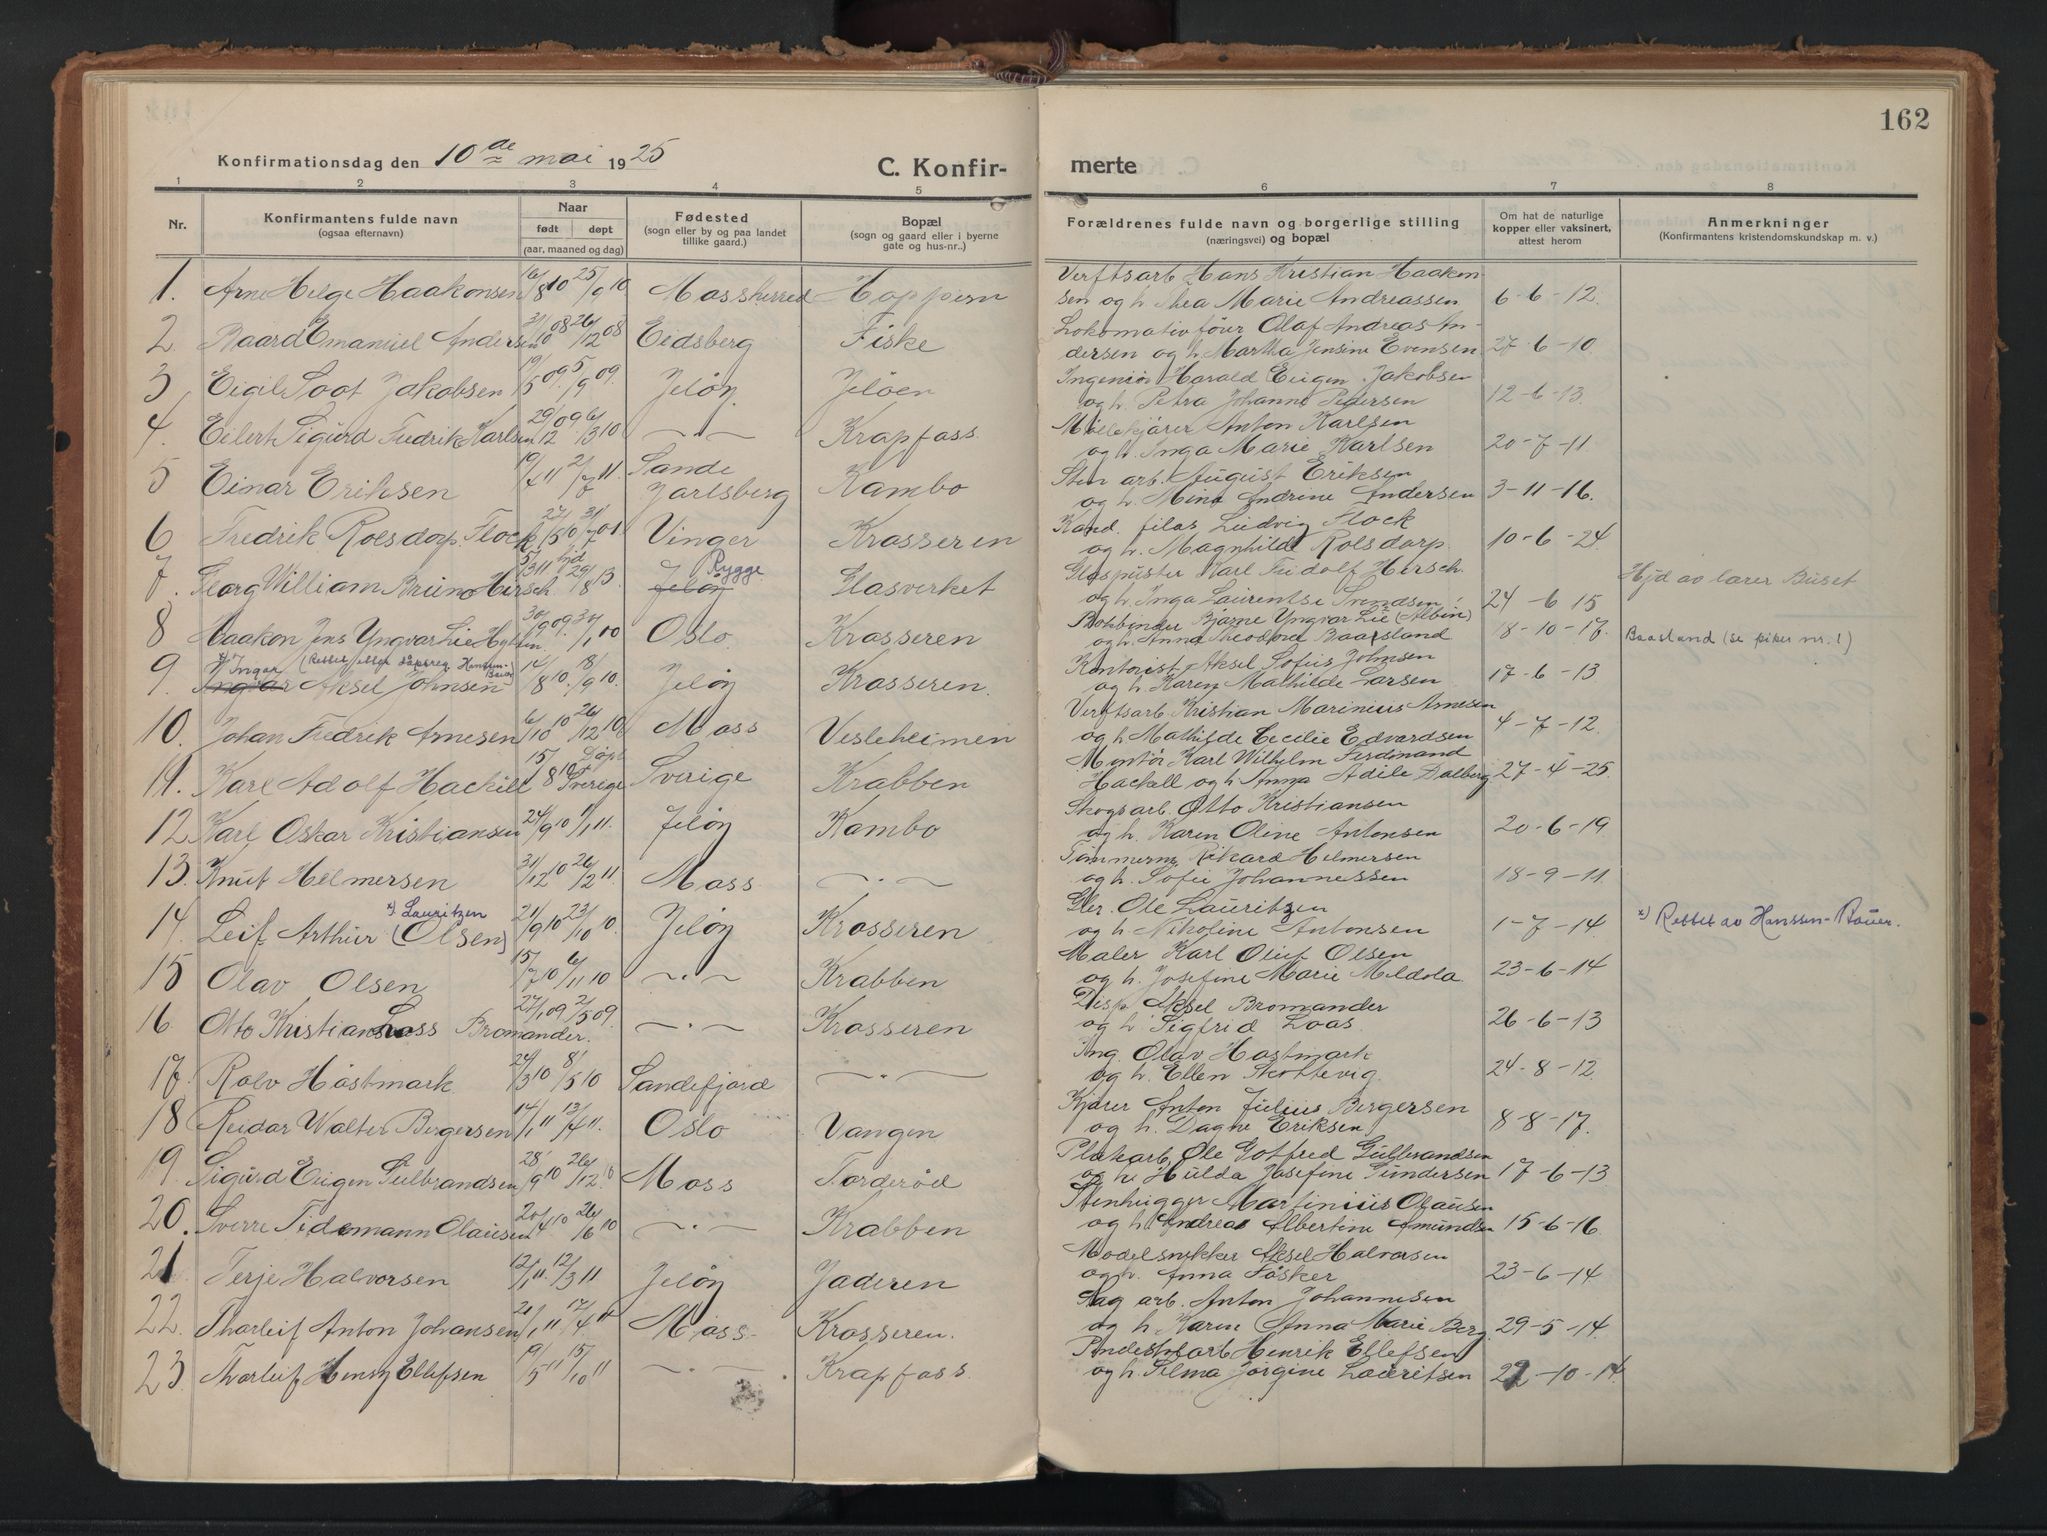 162
Konfirmationsdag den 10de mai 1925
C. Konfir-
merte
1 2 3 4 5 6 7 8
Nr.
Konfirmantens fulde navn
(ogsaa efternavn)
Naar
født døpt
(aar, maaned og dag)
Fødested
(sogn eller by og paa landet
tillike gaard.)
Bopæl
(sogn og gaard eller i byerne
gate og hus-nr..)
Forældrenes fulde navn og borgerlige stilling
(næringsvei) og bopæl
Om hat de naturlige
kopper eller vaksinert,
attest herom
Anmerkninger
(Konfirmantens kristendomskundskap m. v.)
1. Arne Helge Haakonsen 16/8 10 25/9 10 Mossherred Noppern
Verftsarb. Hans Kristian Haakon-
sen og h. Thea Marie Andreassen 6-6-12.
2. Baard Emanuel Andersen 31/10 08 26/12 08 Eidsberg Fiske
Lokomativfører Olaf Andreas An-
dersen og h. Martha Jensine Evensen 27-6-10
3 Eigil Soot Jakobsen 19/5 09 5/9 09. Jeløy Jeløen
Ingeniør Harald Eugen Jakobsen
og h. Petra Johanne Pedersen 12-6-13.
4. Eilert Sigurd Fredrik Karlsen 29/12 09 6/3 10 —"— Krapfoss.
Møllekjører Anton Karlsen
og h. Inga Marie Karlsen 20-7-11.
5 Einar Eriksen 19/4 11 2/7 11. Sande Jarlsberg Kambo
Sten arb. August Eriksen
og h. Mina Andrine Andersen 3-11-16.
6. Fredrik Rolsdorp Flock Vinger Krosseren
Kand. filos Ludvig Flock
og h. Magnhilde Rolsdorp. 10-6-24.
7. Georg William Bruno Hirsch. hjd 29/8 13. Jeløy Rygge Glasverket
Glaspuster Karl Fridolf Hirsch.
og h. Inga Laurentse Svendsen 24-6-15 Hjd av lærer Buset
8 Haakon Jens Yngvar Lie 30/9 09. Oslo. Krosseren
Bokbinder Bjarne Yngvar Lie (Albin)
og h. Anna Theodora Baarsland 18-10-17. Baasland (se piker nr. 1)
9. Yngvar x) Ingar (Rettet etter dåpsreg. Hanssen-Bauer) Aksel Johnsen 14/8 10. 18/9 10. Jeløy Krosseren.
Kontorist Aksel Sofus Johnsen
og h. Karen Mathilde Larsen 17-6-13
10. Johan Fredrik Arnesen 6/10 10 26/12 10 Moss Vesleheimen
Verftsarb. Kristian Marinius Arnesen
og h. Mathilde Cecilie Edvardsen 4-7-12.
11. Karl Adolf Hackill 15/8 10 Døpt Sverige Sverige Krabben
Montør Karl Wilhelm Ferdinand
Hackell og h. Anna Adile Dalberg 27-4-25.
12. Karl Oskar Kristiansen 24/9 10 1/1 11. Jeløy Kambo
Skogsarb. Otto Kristiansen
og h. Karen Oline Antonsen 20-6-19
13. Knut Helmersen 31/12 10 26/2 11. Moss. —"—
Tømmerm. Rikard Helmersen
og h. Sofie Johannessen 18-9-11.
14. Leif Arthur (Olsen) x) Lauritzen 21/9 10 23/10 10. Jeløy Krosseren
Gler. Ole Lauritzen
og h. Nikoline Antonsen 1-7-14. x) Rettet av Hanssen-Bauer.
15. Olav Olsen 15/7 10 6/11 10 —"— Krabben
Maler Karl Oluf Olsen
og h. Josefine Marie Meldola. 23-6-14
16. Otto Kristian Loss Bromander. 27/1 09 2/5 09. —"— Krosseren
Disp. Aksel Bromander
og h. Sigfrid Loas. 26-6-13
17. Rolv Høstmark 24/3 10 8/5 10 Sandefjord —"—
Ing. Olav Høstmark
og h. Ellen Skottevig. 24-8-12.
18 Reidar Walter Bergersen 14/1 11 13/4 11. Oslo Vangen
Kjører Anton Julius Bergersen
og h. Dagne Eriksen 8-8-17.
19. Sigurd Eugen Gulbrandsen 28/9 10 26/12 10 Moss Torderød
Platearb. Ole Gotfred Gulbrandsen
og h. Hulda Josefine Gundersen 17-6-13
20. Sverre Tidemann Olausen 20/4 10 26/6 10 —"— Krabben
Stenhugger Martinius Olausen
og h. Andrea Albertine Amundsen 15-6-16
21 Terje Halvorsen 12/1 11. 12/3 11 Jeløy Jaderen
Modelsnekker Aksel Halvorsen
og h. Anna Fosker 23-6-14
22. Tharleif Anton Johansen 21/1 11 17/4 11 Moss Krosseren.
Sag arb. Anton Johannesen
og h. Karen Anna Marie Berg. 29-5-14.
23. Tharleif Henry Ellefsen 19/5 11 15/10 11 —"— Krapfoss.
arb Henrik Ellefsen
og h. Selma Jørgine Lauritsen 22-10-14.